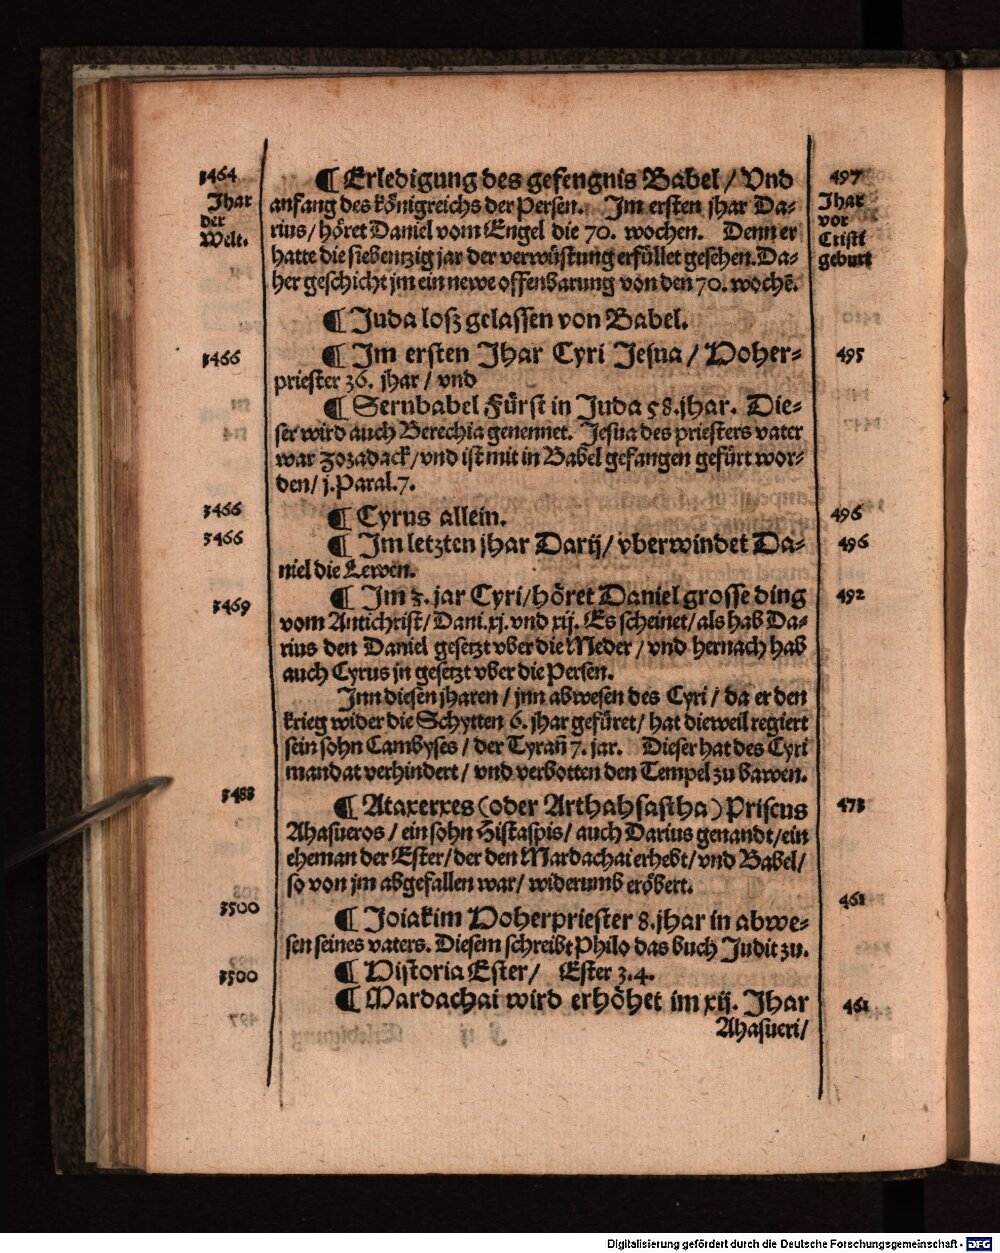 3464 ¶ Erledigung des gefengnis Babel / Vnd 497
Jhar anfang des königreichs der Persen. Jm ersten jhar Da- Jhar
der rius / höret Daniel vom Engel die 70. wochen. Denn er vor
Welt. hatte die siebentzig jar der verwüstung erfüllet gesehen. Da- Cristi
her geschicht jm ein newe offenbarung von den 70. wochē. geburt
¶ Juda losz gelassen von Babel.
3466 ¶ Jm ersten Jhar Cyri Jesua / Hoher- 495
priester 36. jhar / vnd
¶ Serubabel Fürst in Juda 58. jhar. Die-
ser wird auch Berechia genennet. Jesua des priesters vater
war Jozadack / vnd ist mit in Babel gefangen gefürt wor-
den / j. Paral. 7.
3466 ¶ Cyrus allein. 496
3466 ¶ Jm letzten jhar Darij / vberwindet Da- 496
niel die Lewen.
3469 ¶ Jm 3. jar Cyri / höret Daniel grosse ding 492
vom Antichrist / Dani. xj. vnd xij. Es scheinet / als hab Da-
rius den Daniel gesetzt vber die Meder / vnd hernach hab
auch Cyrus jn gesetzt vber die Persen.
Jnn diesen jharen / jnn abwesen des Cyri / da er den
krieg wider die Schytten 6. jhar gefüret / hat dieweil regiert
sein sohn Cambyses / der Tyrañ 7. jar. Dieser hat des Cyri
mandat verhindert / vnd verbotten den Tempel zu bawen.
3488 ¶ Ataxerxes (oder Arthahsastha) Priscus 473
Ahasueros / ein sohn Histaspis / auch Darius genandt / ein
eheman der Ester / der den Mardachai erhebt / vnd Babel /
so von jm abgefallen war / widerumb eröbert.
3500 ¶ Joiakim Hoherpriester 8. jhar in abwe- 461
sen seines vaters. Diesem schreibt Philo das buch Judit zu.
3500 ¶ Historia Ester / Ester 3. 4.
¶ Mardachai wird erhöhet im xij. Jhar 461
Ahasueri /
Digitalisierung gefördert durch die Deutsche Forschungsgemeinschaft - DFG